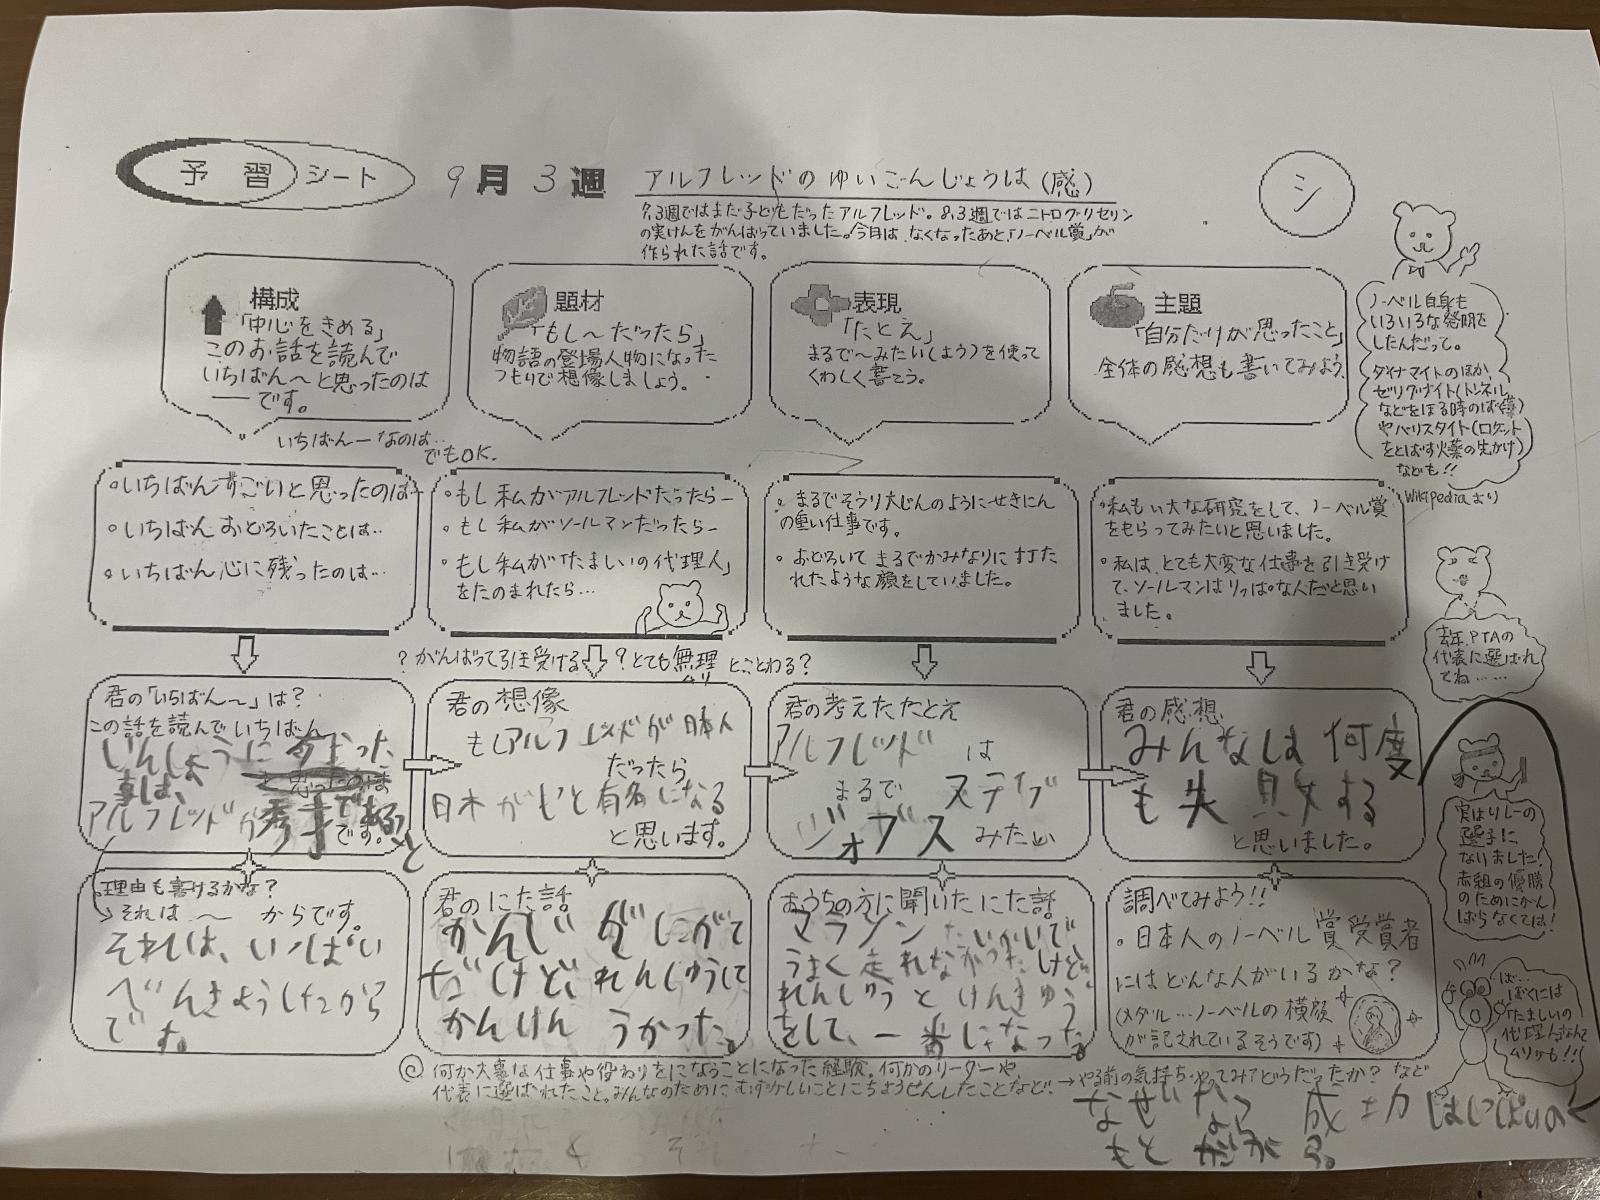 予習シート
9月3週
アルフレッドのゆいごんじょうは(感)
シ
7.3週ではまだ子どもだったアルフレッド。8.3週ではニトログリセリン
の実けんをがんばっていました。今月は、なくなったあと、「ノーベル賞」が
作られた話です。
構成
「中心をきめる」
このお話を読んで
いちばん〜と思ったのは
――です。
いちばんーなのは…
でもOK.
題材
「もし〜だったら」
物語の登場人物になった
つもりで想像しましょう。
表現
「たとえ」
まるで〜みたい(よう)を使って
くわしく書こう。
主題
「自分だけが思ったこと」
全体の感想も書いてみよう。
ノーベル自身も
いろいろな発明を
したんだって。
ダイナマイトのほか、
ゼリグナイト(トンネル
などをほる時のばく薬)
やバリスタイト(ロケット
をとばす火薬の先がけ)
なども!!
Wikipediaより
・いちばんすごいと思ったのは
・いちばんおどろいたことは…
・いちばん心に残ったのは…
・もし私がアルフレッドだったらー
・もし私がソールマンだったらー
・もし私が「たましいの代理人」
をたのまれたら…
・まるでそうり大じんのようにせきにん
の重い仕事です。
・おどろいてまるでかみなりに打た
れたような顔をしていました。
・私もい大な研究をして、ノーベル賞
をもらってみたいと思いました。
・私は、とても大変な仕事を引き受け
て、ソールマンはりっぱな人だと思い
ました。
去年、PTAの
代表に選ばれ
てね……
?がんばって引き受ける ?とても無理 とことわる?
ムリ
君の「いちばん〜」は?
この話を読んでいちばん
いんしょうに なった
事は、
アルフレッドが秀才である、と
です。
君の想像
もしアルフレッドが日本人
だったら
日本がもと有名になる
と思います。
君の考えたたとえ
アルフレッドは
まるで スティブ
ジョブス みたい
君の感想
みんなは何度
も失敗する
と思いました。
実はリレーの
選手に
なりました!
赤組の優勝
のためにがん
ばらなくては!
理由も書けるかな?
→それは 〜 からです。
それは、いっぱい
べんきょうしたから
です。
君のにた話
かんじがにがて
だけど、れんしゅうして
かんけんうかった。
おうちの方に聞いたにた話
マラソンたいかいで
うまく走れなかったけど、
れんしゅうとけんきゅう
をして、一番になった。
調べてみよう!!
・日本人のノーベル賞受賞者
にはどんな人がいるかな?
(メダル…ノーベルの横顔
が記されているそうです)
ば…
ぼくには
「たましいの
代理人」なんて
ムリかも!!
◎何か大事な仕事や役わりをになうことになった経験。何かのリーダーや、
代表に選ばれたこと。みんなのためにむずかしいことにちょうせんしたことなど。→やる前の気持ち・やってみてどうだったか?など
なぜなら 成功はしっぱいの
もとだから。